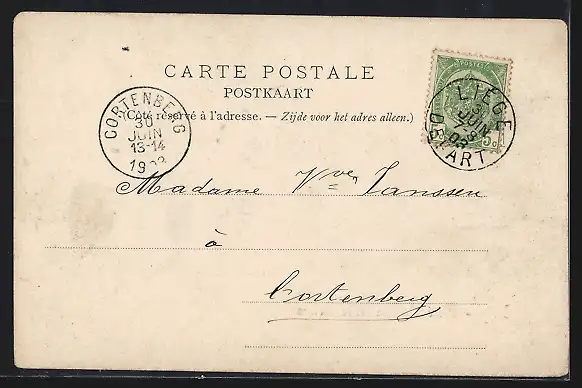 CARTE POSTALE
POSTKAART
(Côté réservé à l'adresse. — Zijde voor het adres alleen.)
CORTENBERG
30
JUIN
13-14
1903
POSTES
LIEGE
JUIN
03
DEPART
Madame Vve Janssen
à
Cortenberg